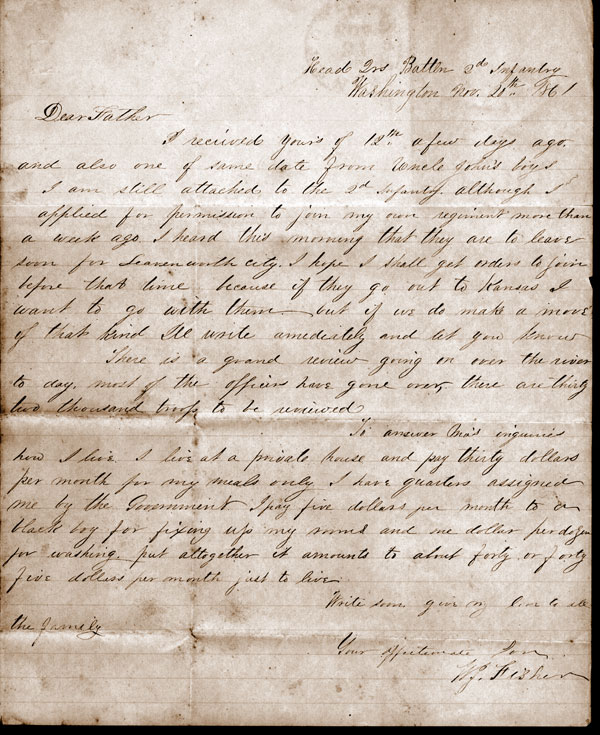 Head Qrs Battln 2d Infantry
Washington Nov. 20th 1861
Dear Father
I recieved yours of 12th a few days ago.
and also one of same date from Uncle John's boys
I am still attached to the 2d Infantry although I
applied for permission to join my own regiment more than
a week ago. I heard this morning that they are to leave
soon for Leavenworth City. I hope I shall get orders to join
before that time because if they go out to Kansas I
want to go with them but if we do make a move
of that kind Ill write amediately and let you know
There is a grand review going on over the river
to day. most of the officers have gone over, there are thirty
two thousand troops to be reviewed
To answer Ma's inquiries
how I live. I live at a private house and pay thirty dollars
per month for my meals only. I have quarters assigned
me by the Government I pay five dollars per month to a
black boy for fixing up my rooms and one dollar per dozen
for washing. put alltogether it amounts to about forty or forty
five dollars per month just to live.
Write soon give my love to all
the family
Your affectionate Son
Fisher